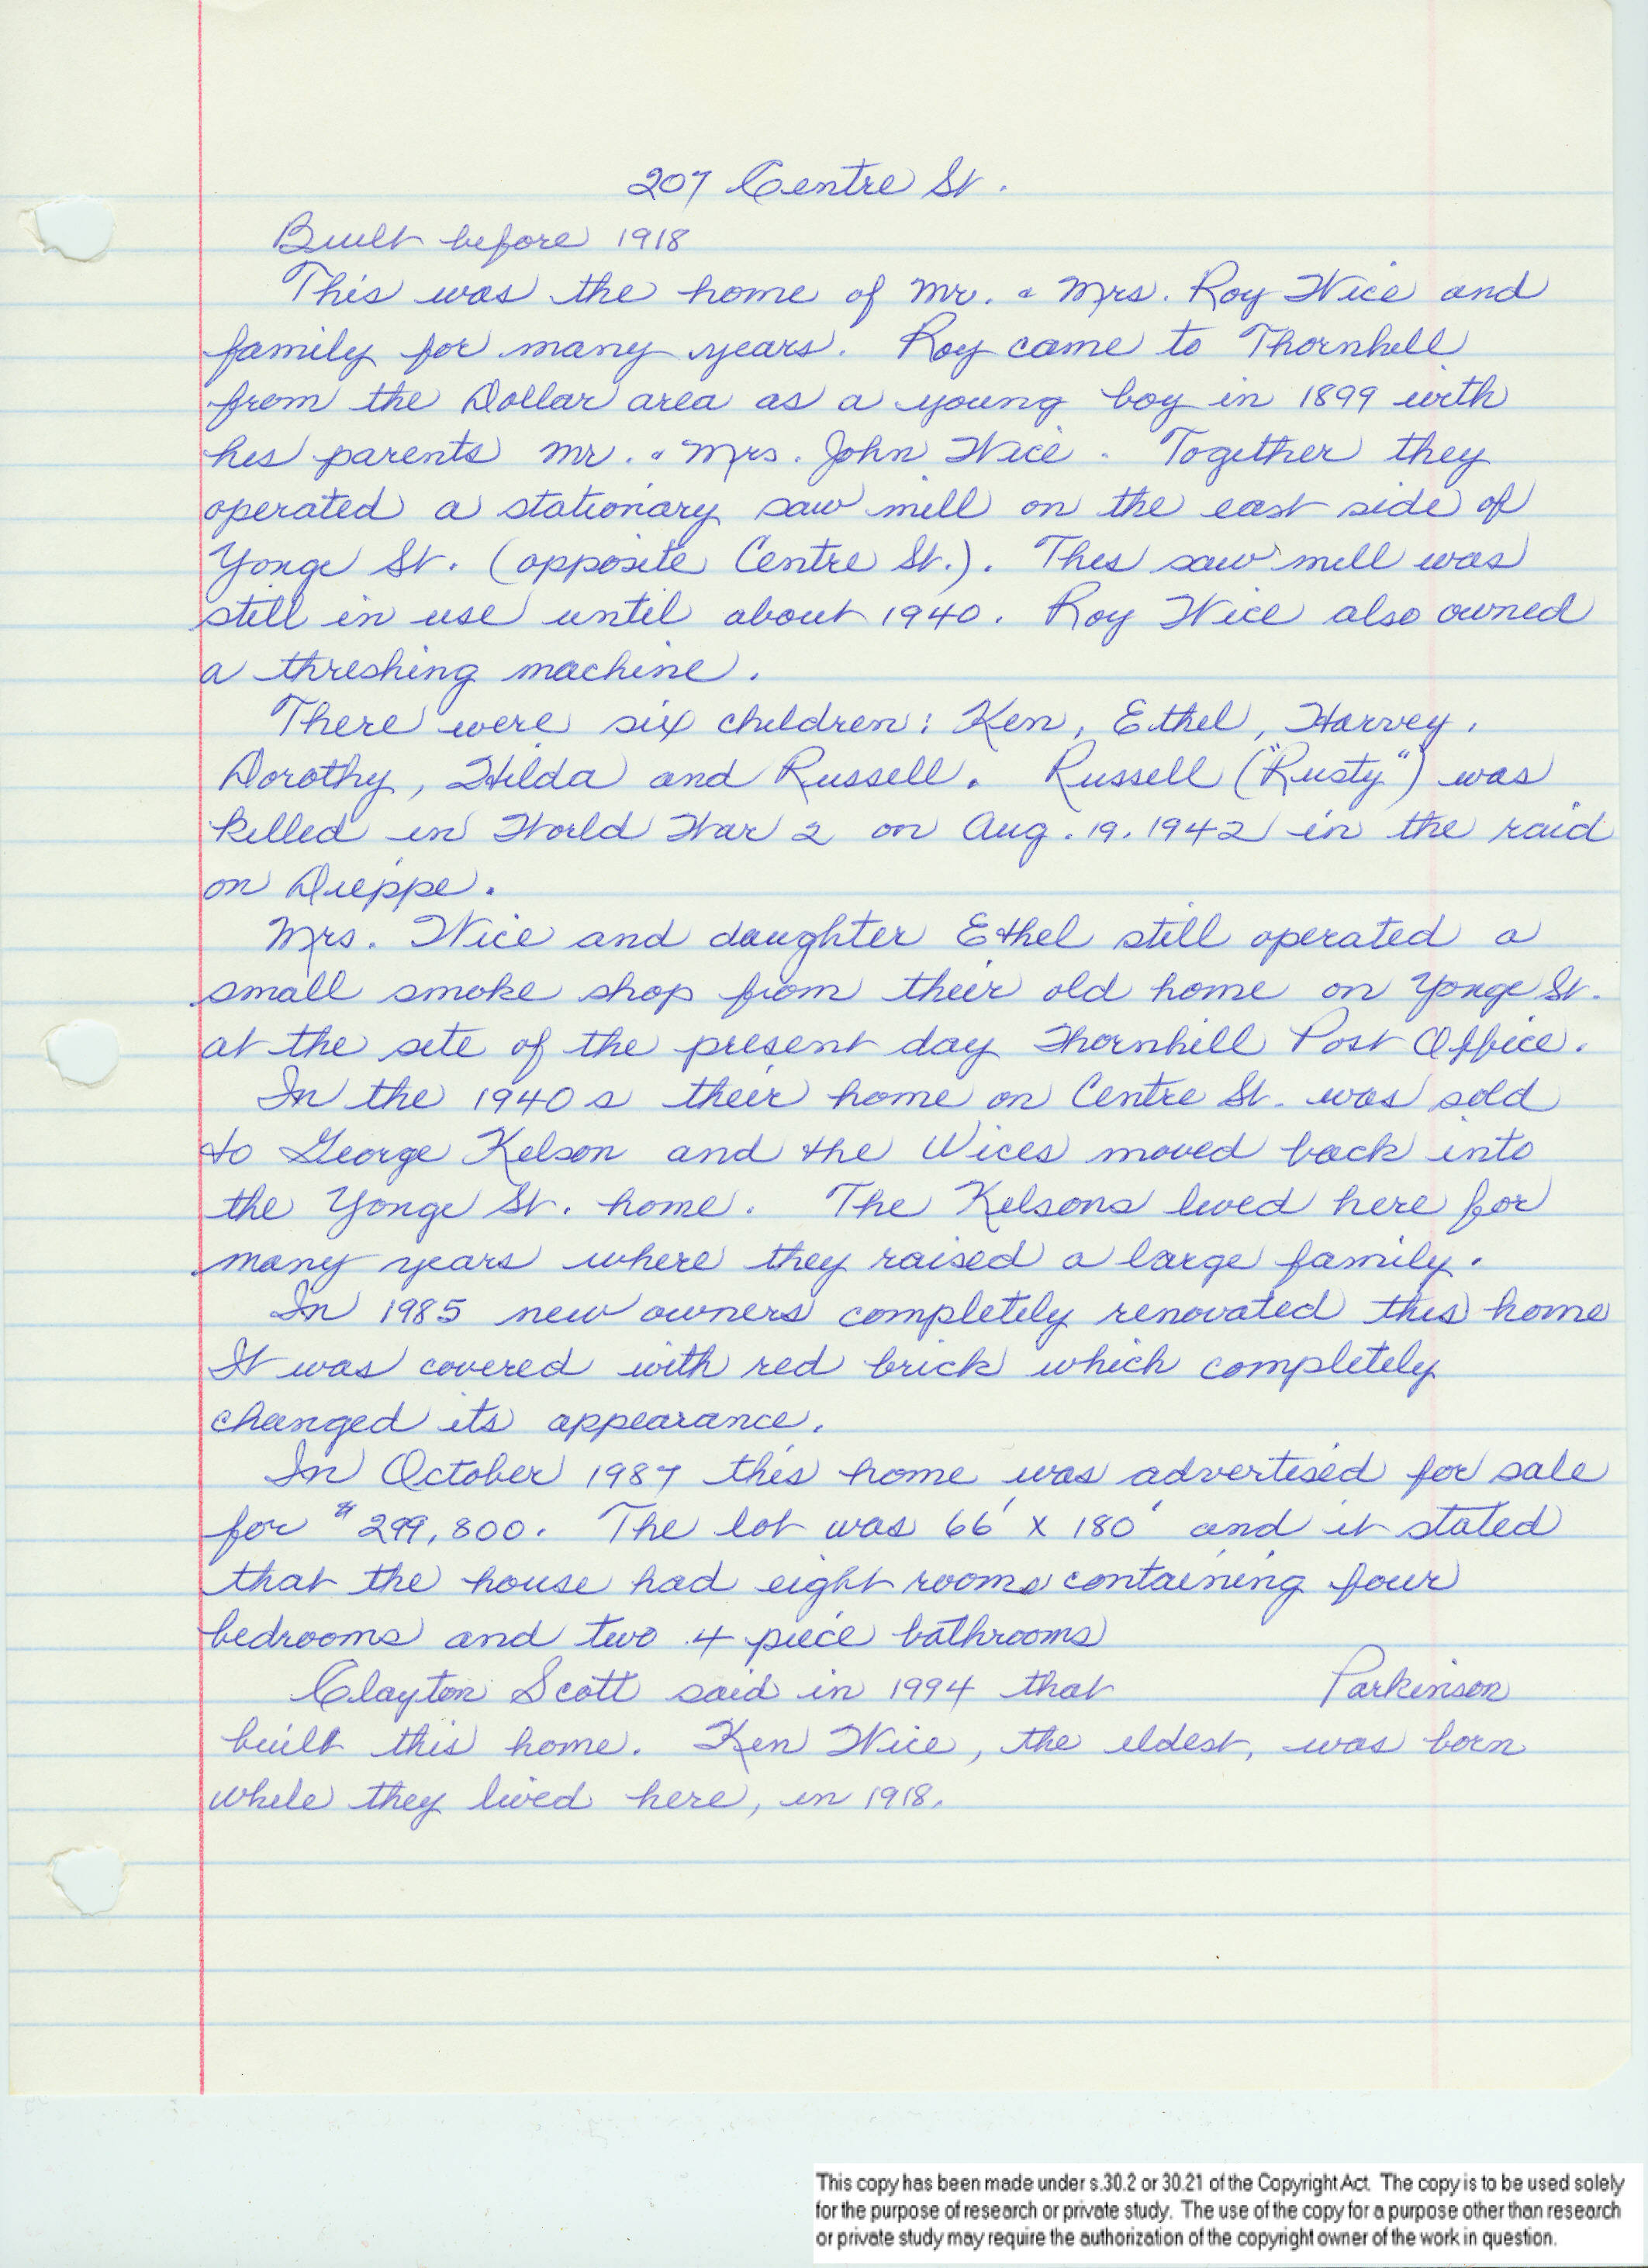 207 Centre St.
Built before 1918
This was the home of Mr. & Mrs. Roy Wice and
family for many years. Roy came to Thornhill
from the Dollar area as a young boy in 1899 with
his parents Mr. & Mrs. John Wice. Together they
operated a stationary saw mill on the east side of
Yonge St. (opposite Centre St.). This saw mill was
still in use until about 1940. Roy Wice also owned
a threshing machine.
There were six children: Ken, Ethel, Harvey,
Dorothy, Hilda and Russell. Russell ("Rusty") was
killed in World War 2 on Aug. 19, 1942 in the raid
on Dieppe.
Mrs. Wice and daughter Ethel still operated a
small smoke shop from their old home on Yonge St.
at the site of the present day Thornhill Post Office.
In the 1940s their home on Centre St. was sold
to George Kelson and the Wices moved back into
the Yonge St. home. The Kelsons lived here for
many years where they raised a large family.
In 1985 new owners completely renovated this home
It was covered with red brick which completely
changed its appearance.
In October 1987 this home was advertised for sale
for $299,800. The lot was 66' x 180' and it stated
that the house had eight rooms containing four
bedrooms and two 4 piece bathrooms
Clayton Scott said in 1994 that Parkinson
built this home. Ken Wice, the eldest, was born
while they lived here, in 1918.
This copy has been made under s.30.2 or 30.21 of the Copyright Act. The copy is to be used solely
for the purpose of research or private study. The use of the copy for a purpose other than research
or private study may require the authorization of the copyright owner of the work in question.